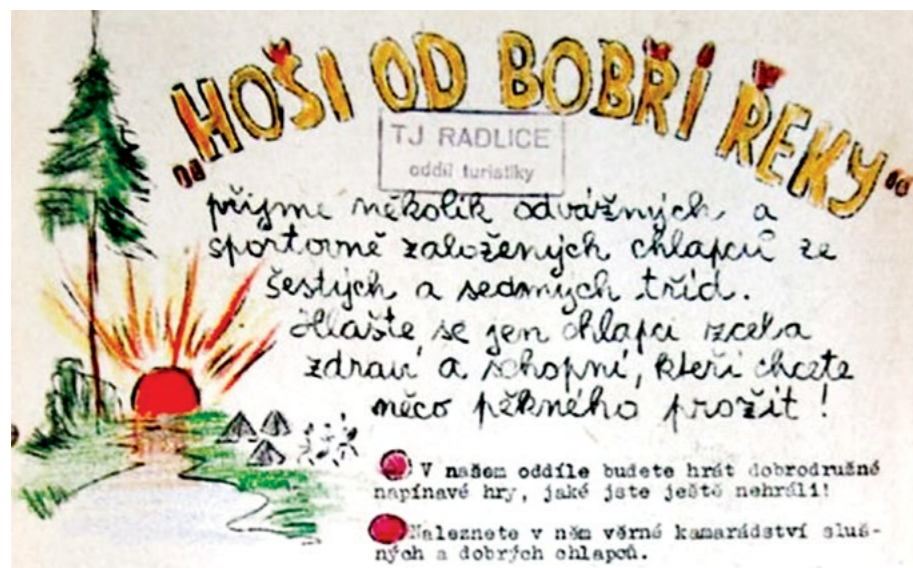 „HOŠI OD BOBŘÍ ŘEKY“
TJ RADLICE
oddíl turistiky
přijme několik odvážných a
sportovně založených chlapců ze
šestých a sedmých tříd.
Hlašte se jen chlapci zcela
zdraví a schopní, kteří chcete
něco pěkného prožít!
V našem oddíle budete hrát dobrodružné
napínavé hry, jaké jste ještě nehráli!
Naleznete v něm věrné kamarádství sluš-
ných a dobrých chlapců.